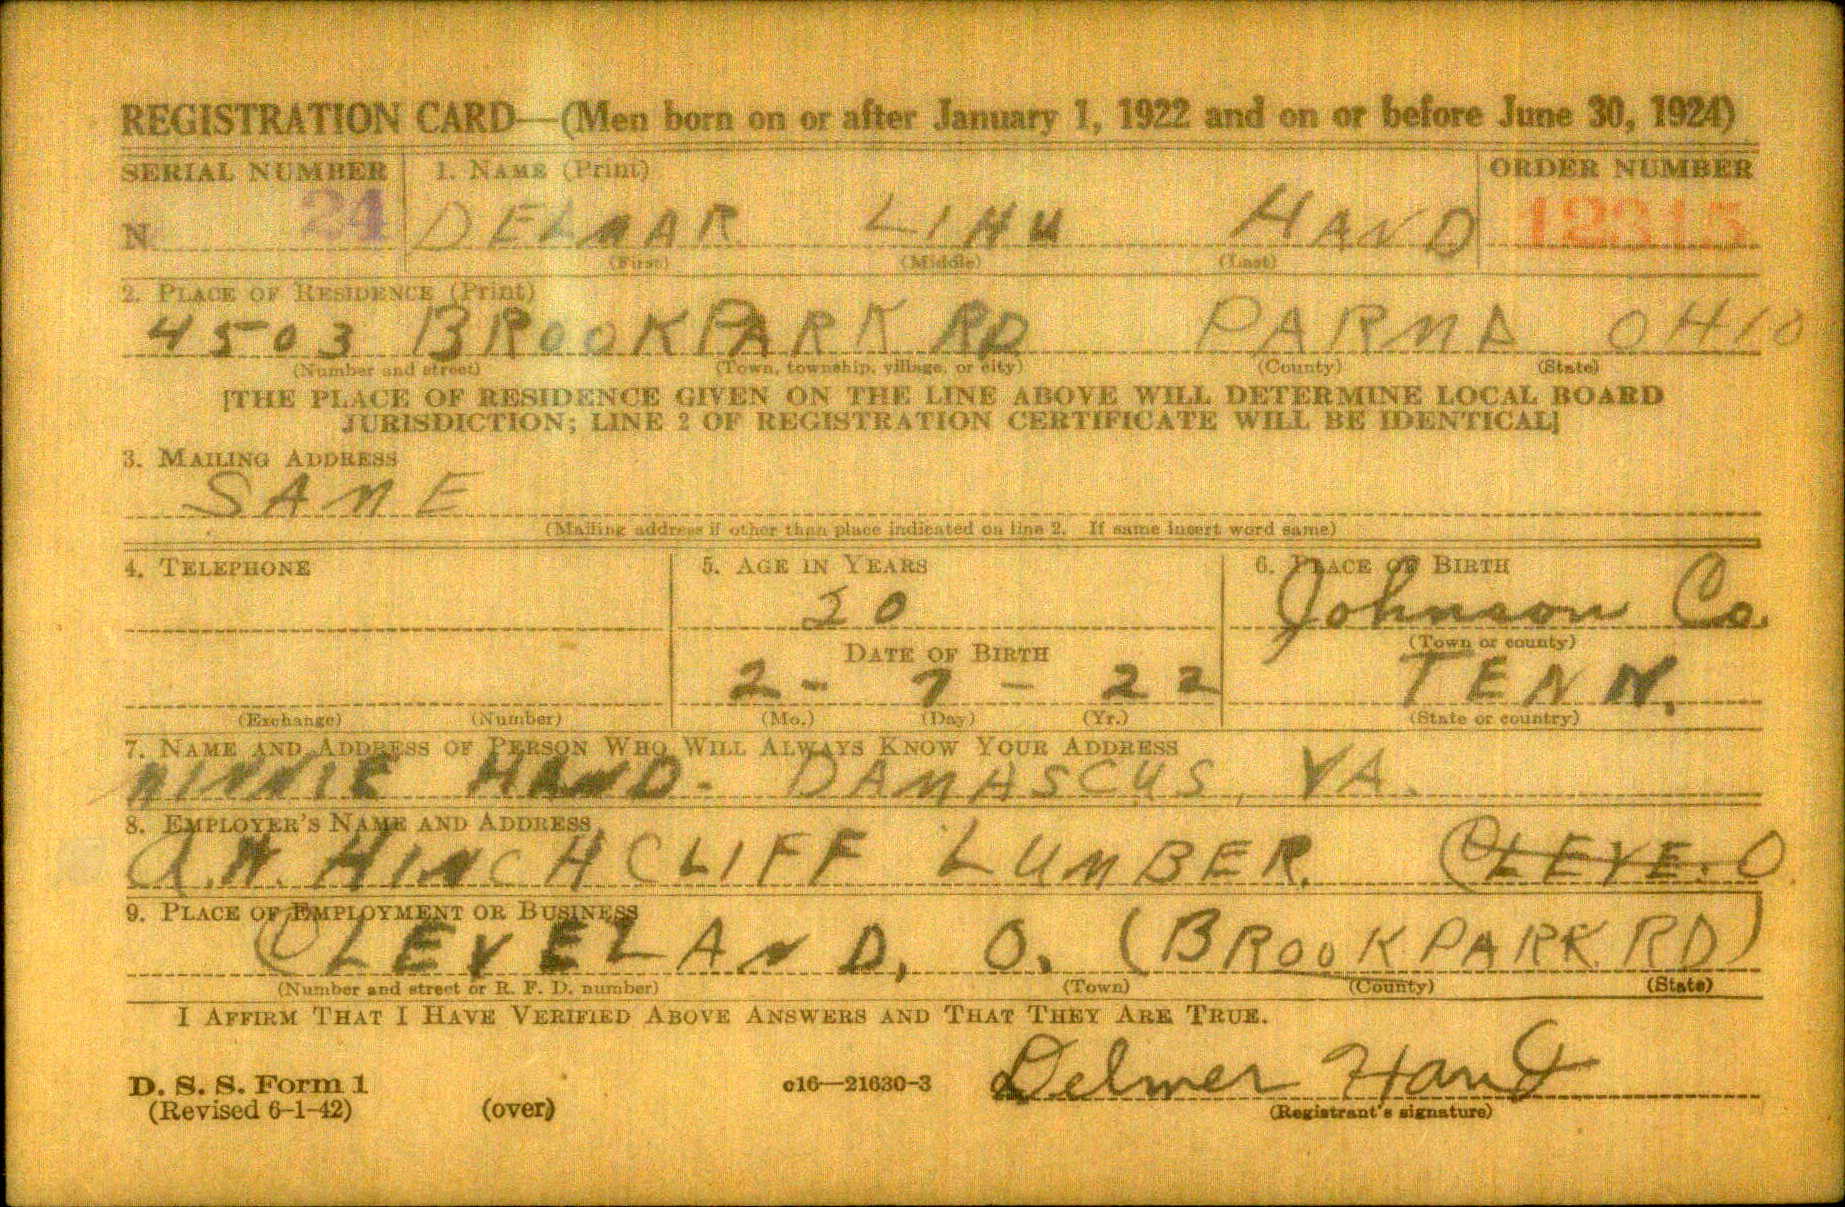 REGISTRATION CARD—(Men born on or after January 1, 1922 and on or before June 30, 1924)
SERIAL NUMBER 1. NAME (Print) ORDER NUMBER
N 24 DELMAR LIHU HAND 12315
(First) (Middle) (Last)
2. PLACE OF RESIDENCE (Print)
4503 BROOKPARK RD PARMA OHIO
(Number and street) (Town, township, village, or city) (County) (State)
[THE PLACE OF RESIDENCE GIVEN ON THE LINE ABOVE WILL DETERMINE LOCAL BOARD
JURISDICTION; LINE 2 OF REGISTRATION CERTIFICATE WILL BE IDENTICAL]
3. MAILING ADDRESS
SAME
(Mailing address if other than place indicated on line 2. If same insert word same)
4. TELEPHONE 5. AGE IN YEARS 6. PLACE OF BIRTH
20 Johnson Co.
(Town or county)
DATE OF BIRTH
2 - 7 - 22 TENN.
(Exchange) (Number) (Mo.) (Day) (Yr.) (State or country)
7. NAME AND ADDRESS OF PERSON WHO WILL ALWAYS KNOW YOUR ADDRESS
MINNIE HAND - DAMASCUS, VA.
8. EMPLOYER'S NAME AND ADDRESS
A.W. HINCHCLIFF LUMBER. CLEVE. O.
9. PLACE OF EMPLOYMENT OR BUSINESS
CLEVELAND, O. (BROOKPARK RD)
(Number and street or R. F. D. number) (Town) (County) (State)
I AFFIRM THAT I HAVE VERIFIED ABOVE ANSWERS AND THAT THEY ARE TRUE.
D. S. S. Form 1 c16—21630-3 Delmer Hand
(Revised 6-1-42) (over) (Registrant's signature)